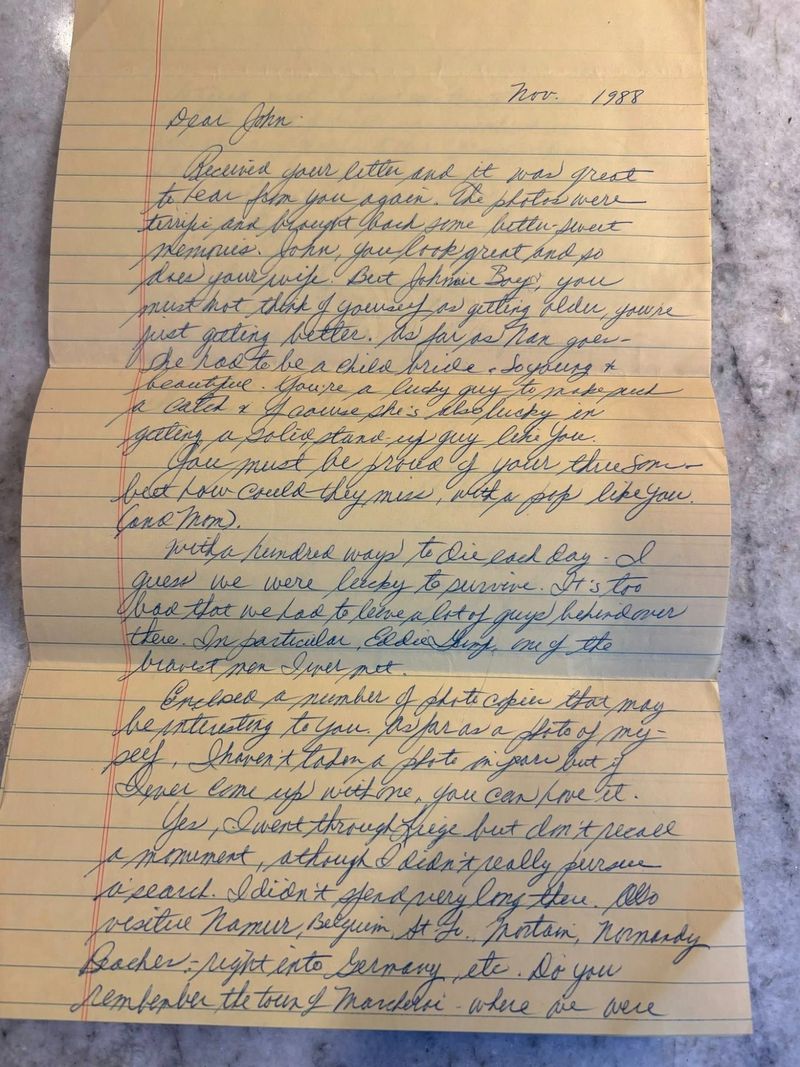 Nov. 1988
Dear John.
Received your letter and it was great
to hear from you again. The photos were
terrific and brought back some bitter-sweet
memories. John, you look great and so
does your wife. But Johnnie Boy, you
must not think of yourself as getting older, you're
just getting better. As far as Nan goes-
she had to be a child bride. So young &
beautiful. You're a lucky guy to make such
a catch & of course she's also lucky in
getting a solid, stand-up guy like you.
You must be proud of your three sons-
but how could they miss, with a pop like you.
(and Mom).
With a hundred ways to die each day - I
guess we were lucky to survive. It's too
bad that we had to leave a lot of guys behind over
there. In particular, Eddie one of the
bravest men I ever met.
Enclosed a number of photo copies that may
be interesting to you. As far as a photo of my-
self, I haven't taken a photo in years but if
I ever come up with one, you can have it.
Yes, I went through Liege but don't recall
a monument, although I didn't really pursue
a search. I didn't spend very long there. Also
visited Namur, Belguim, St. Lo, Mortain, Normandy
Beaches - right into Germany, etc. Do you
remember the town of where we were